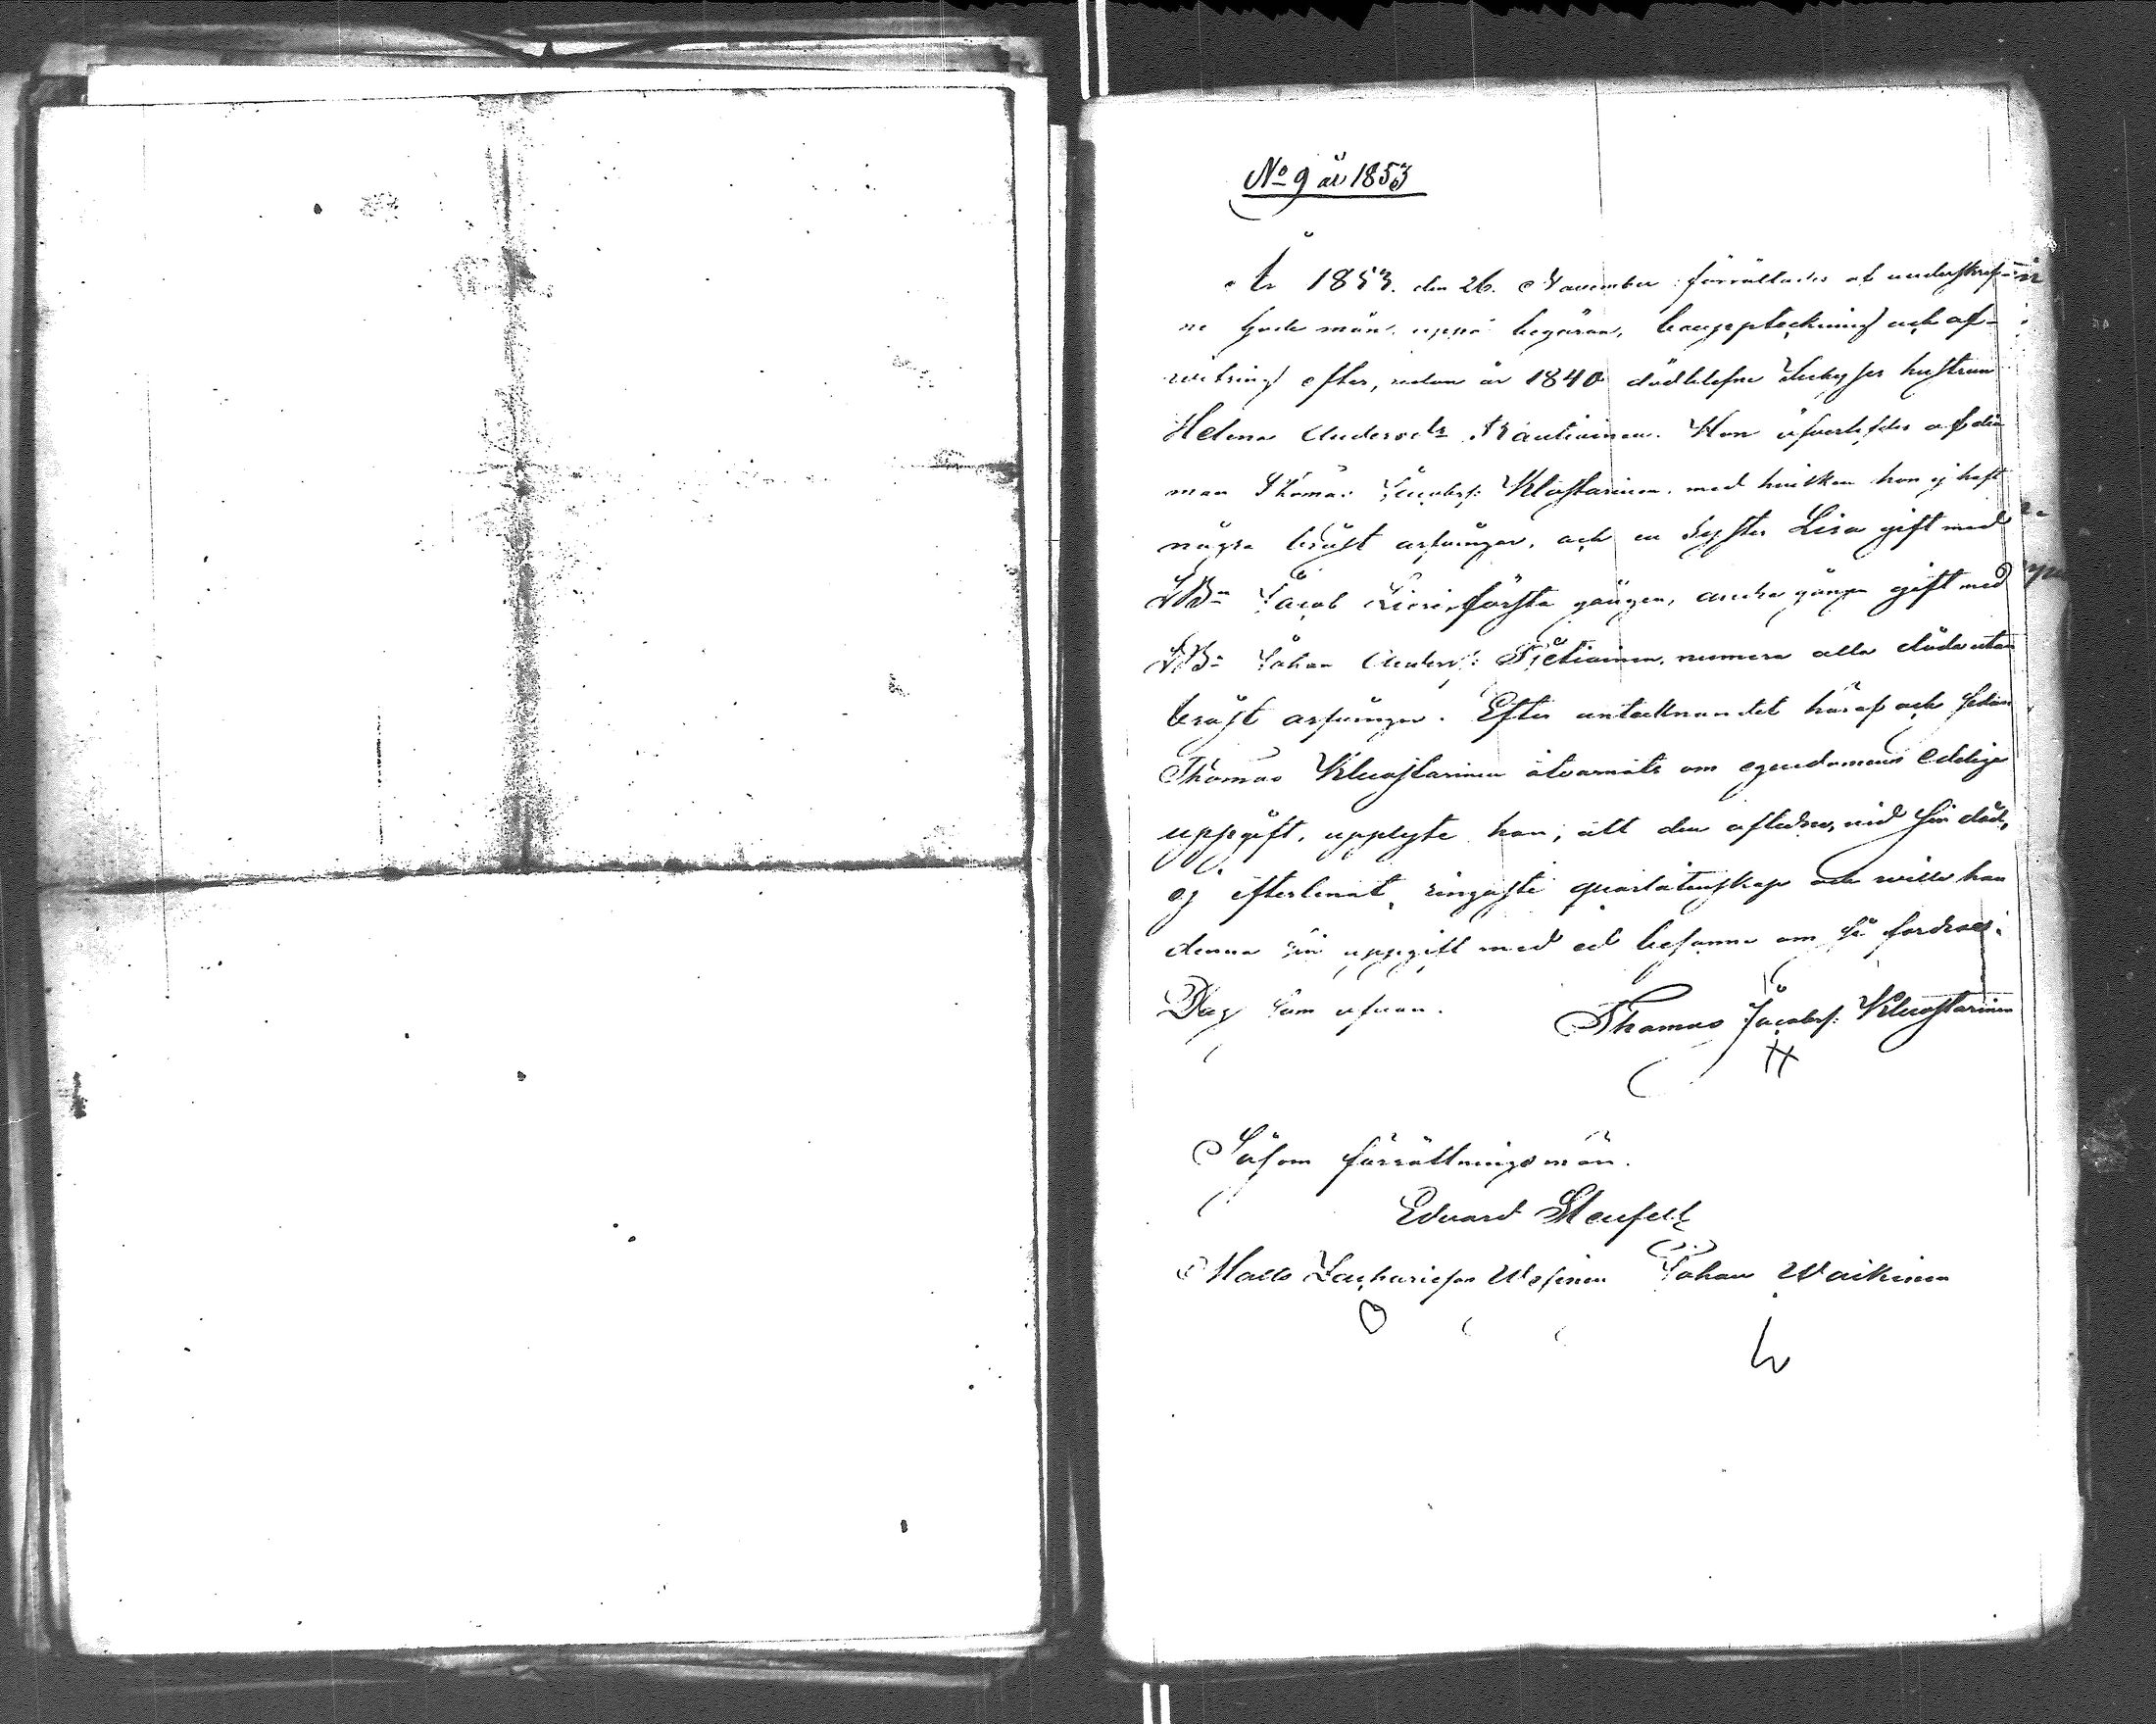 No 9 år 1853
År 1853. den 26. November förrättades af underskref-
ne Gode män uppå begäran, bouppteckning och af-
vitring efter, redan år 1840 dödblefne hustrun
Helena Andersdr Rautiainen. Hon öfverlefdes af din
man Thomas Jacobss: Kluostarinen, med hvilken hon ej haft
några bröst arfvingar, och en Syster Lisa gift med
Jacob första gången, andra gången gift med
Johan Anderss: Tietiainen, numera alla döda utan
bröst arfvingar. Efter antecknandet häraf och sedan
Thomas Kluostarinen åtvarnats om egendomens edelige
uppgift, upplyste han, att den aflidne, vid sin död,
ej efterlemnat ringaste quarlåtenskap och wille han
denna sin uppgift med ed besanna om så fordras.
Dag som ofvan. Thomas Jacobss: Kluostarinen
Såsom förrättningsmän.
Edvard Stenfelt
Mats Zachariesson Johan Waikinen